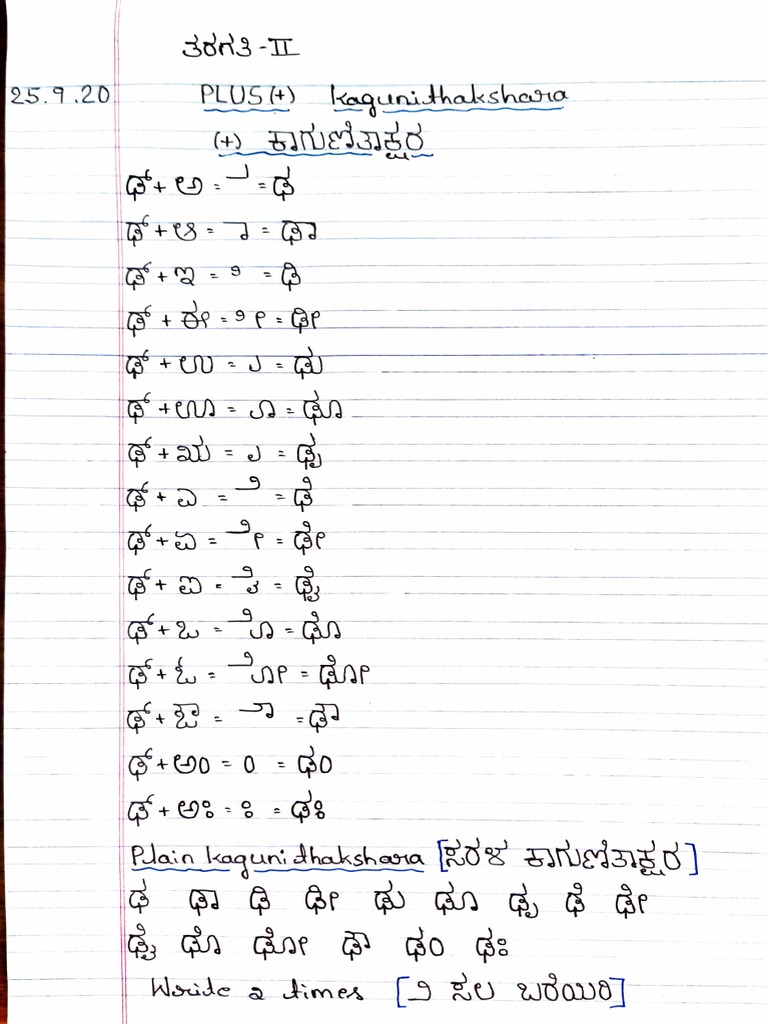 ತರಗತಿ - II
25.9.20 PLUS (+) kagunithakshara
(+) ಕಾಗುಣಿತಾಕ್ಷರ
ಢ್ + ಅ = ‍್ = ಢ
ಢ್ + ಆ = ಾ = ಢಾ
ಢ್ + ಇ = ಿ = ಢಿ
ಢ್ + ಈ = ೀ = ಢೀ
ಢ್ + ಉ = ು = ಢು
ಢ್ + ಊ = ೂ = ಢೂ
ಢ್ + ಋ = ೃ = ಢೃ
ಢ್ + ಎ = ೆ = ಢೆ
ಢ್ + ಏ = ೇ = ಢೇ
ಢ್ + ಐ = ೈ = ಢೈ
ಢ್ + ಒ = ೊ = ಢೊ
ಢ್ + ಓ = ೋ = ಢೋ
ಢ್ + ಔ = ೌ = ಢೌ
ಢ್ + ಅಂ = ಂ = ಢಂ
ಢ್ + ಅಃ = ಃ = ಢಃ
Plain kagunithakshara [ಸರಳ ಕಾಗುಣಿತಾಕ್ಷರ]
ಢ ಢಾ ಢಿ ಢೀ ಢು ಢೂ ಢೃ ಢೆ ಢೇ
ಢೈ ಢೊ ಢೋ ಢೌ ಢಂ ಢಃ
Write 2 times [೨ ಸಲ ಬರೆಯಿರಿ]